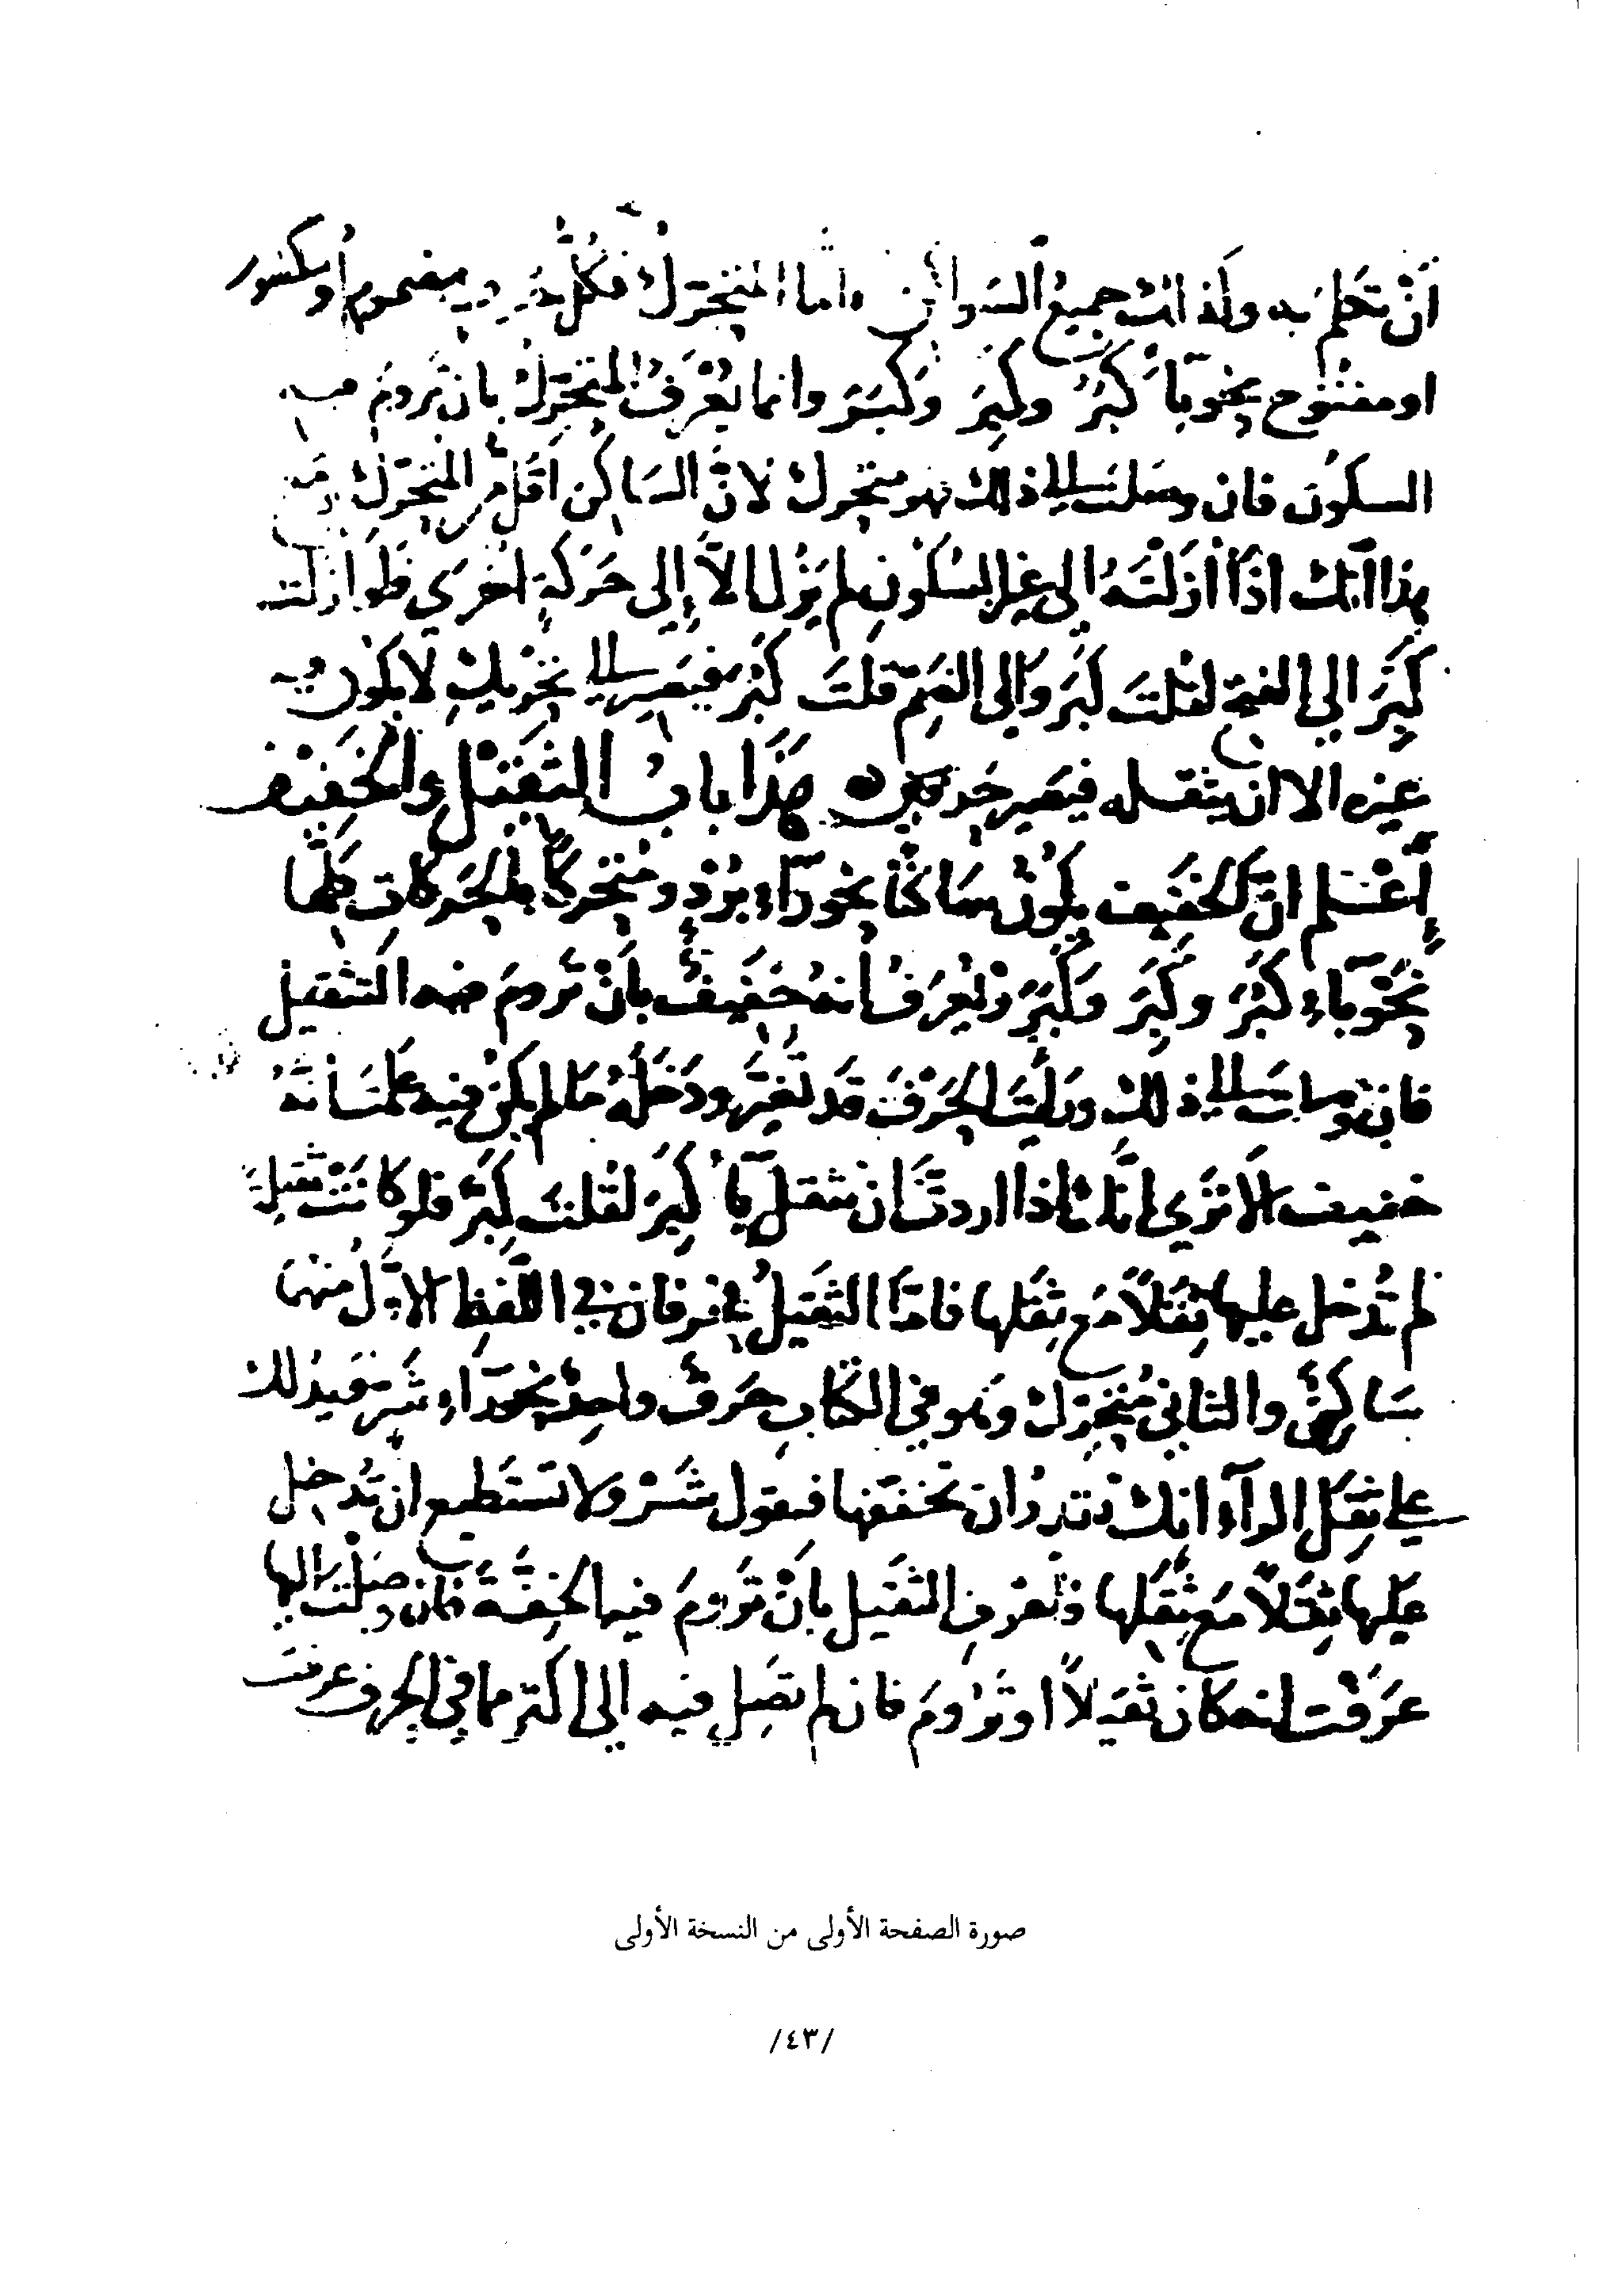 أنْ تتكلم به وكذلك جميع السواكن واما المتحرّك فكلّ حرف مضموم أو مكسور
او مفتُوح نحو بآء كَبُرَ وكَبِرَ وكَبَرَ وانما يُعْرَفُ المتحَرّكُ بان تَرومَ فيه
السكُون فان وصَلتَ الى ذلك فهو متحرك لانّ السَاكن اقَل من المتحَرّك
بهذا انك اذَا ازَلتَهُ الى غير السُكُون لم يَزُل الاّ إلى حَرَكَةٍ اخرَى فلو ازلتَ
كَبِرَ الى الفتحة لقلتَ كَبَرَ والى الضَمّ قلتَ كَبُرَ فيَصير الى تحْريكٍ لا يكون
غيره الا ان يثقله فيصير حرفين هذَا بابُ الثقَيْل والخَفيْف
إعْلم انّ الخَفيف يكُونُ سَاكناً نحو رآء بُرْدٍ ومتحَركاً بالحَرَكات كلّها
نَحْو بَآء كَبُرَ وكَبِرَ وكَبَرَ وتُعرَفُ انهُ خَفيفٌ بأَنْ تَرُومَ فيه التثقيل
فان وصلت الى ذلكَ ورَأيتَ الحَرْفَ قَد تغيّر ودَخَلهُ مَا لم يكن فيه علمتَ انّهُ
خفيف الا تَرى انّك اذا اردتَ ان تثقل بآء كَبِرَ لقُلتَ كَبِّرَ فلو كانتْ ثقيلةً
لم تُدْخل عليها ثِقَلاً مَع ثِقَلها فامّا الثقيلُ فحرفان في اللفظِ الاوّل منهما
سَاكِنٌ والثاني مُتَحَرّك وهو في الكتابِ حَرفٌ واحِدٌ نحو رَآء شَرّ وَيدُلك
على ثِقَل الرآء انك تقدرُ ان تخففها فتقول شَرْ ولا تستَطيع ان تُدخل
عَليها ثِقَلاً مَع ثِقَلها وتَعْرف الثقيل بأنْ تَرُومَ فيه الخِفّةَ فان وصَلْتَ اليها
عَرَفْت انه كان ثقيلاً او تَرُومَ فان لم تصِل فيه الى اكثر مما في الحرف عرفت
صورة الصفحة الأولى من النسخة الأولى
/٤٣/